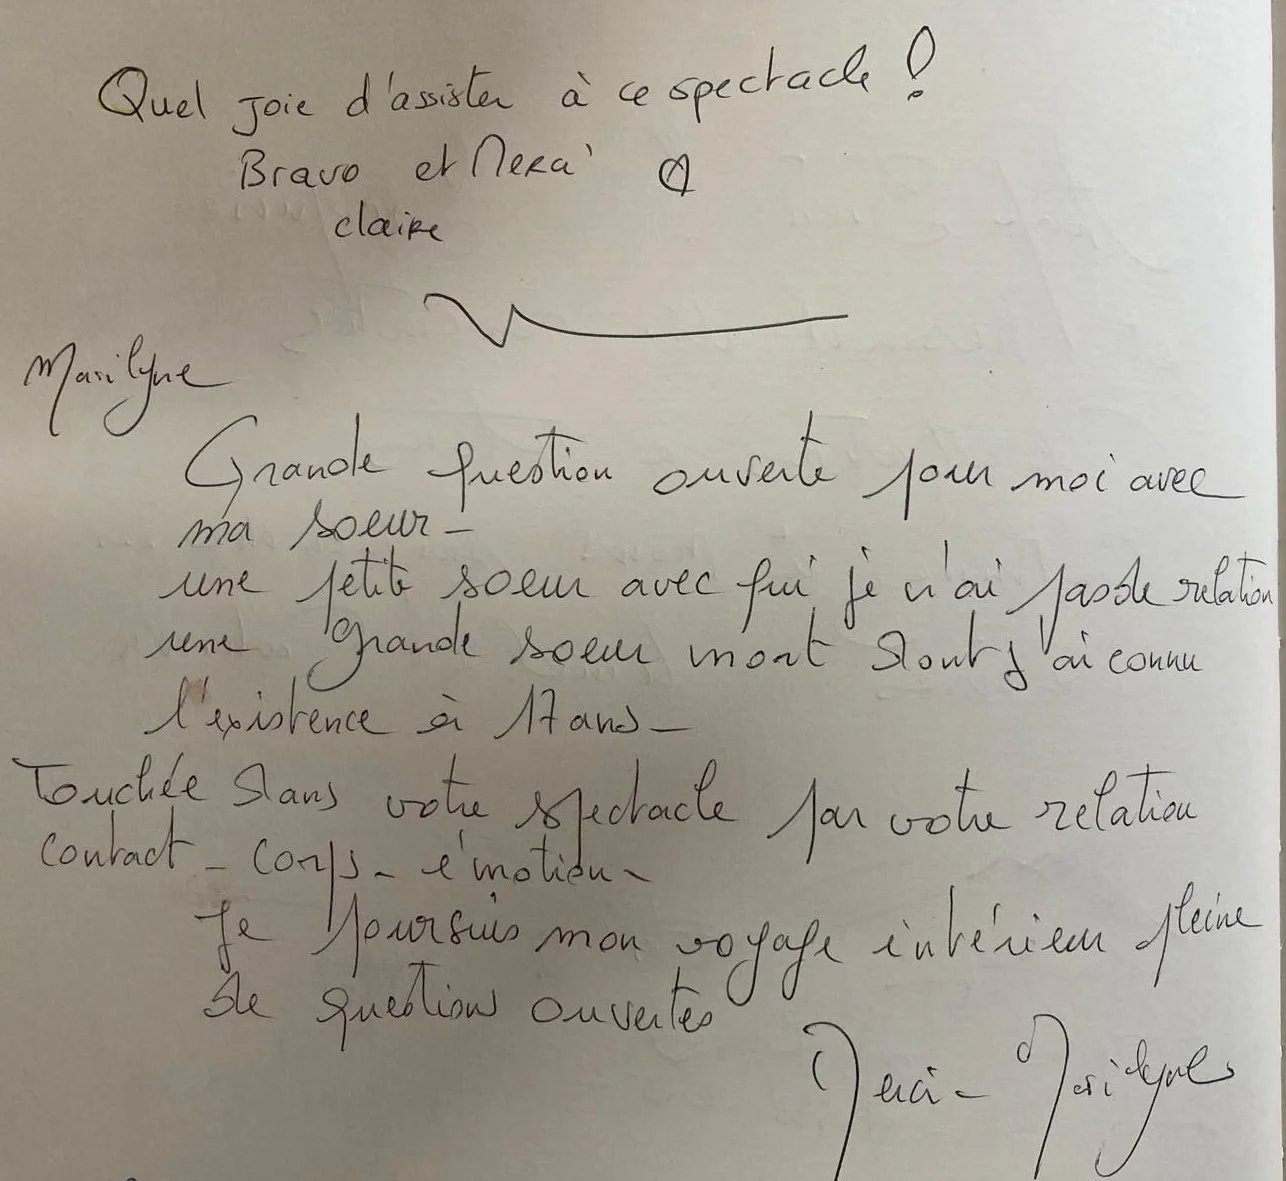 Quel joie d'assister à ce spectacle !
Bravo et Merci
Claire
Marilyne
Grande question ouverte pour moi avec
ma soeur -
une petite soeur avec qui je n'ai pas de relation
une grande soeur mort dont j'ai connu
l'existence à 17 ans -
Touchée dans votre spectacle par votre relation
contact - corps - émotion -
Je poursuis mon voyage intérieur pleine
de questions ouvertes
Merci - Marilyne